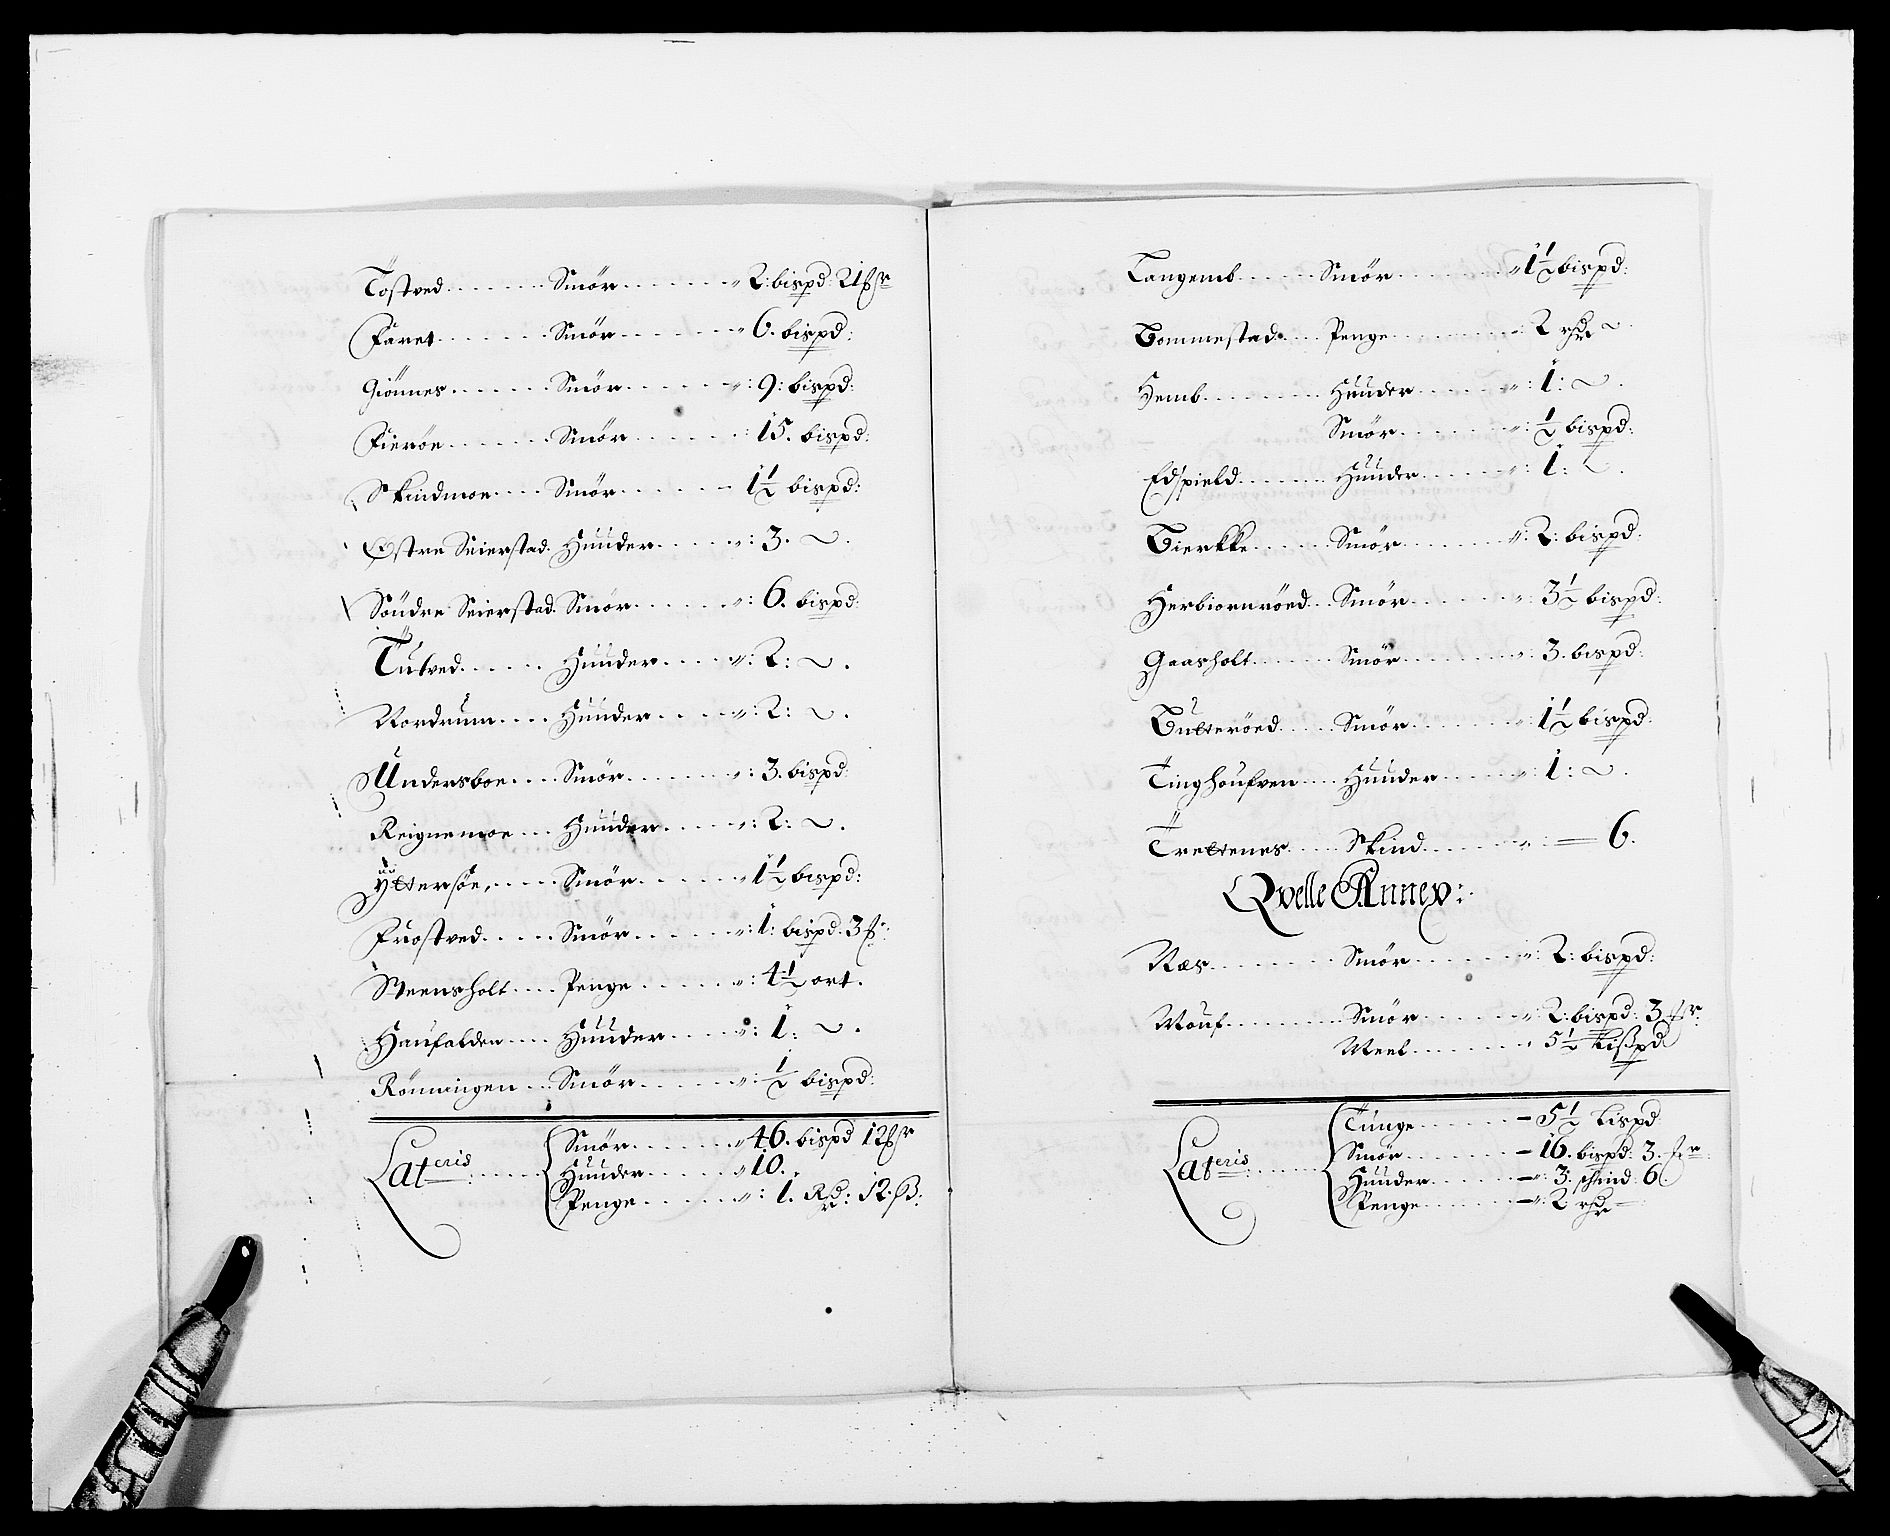 Tostved Smör 2: bispd: 21
Faret Smör 6. bispd:
Giönnes Smör 9: bispd:
Fieröe Smör 15. bispd:
Skindmoe Smör 1½ bispd:
Østre Seierstad Huuder 3.
Söndre Seierstad Smör 6. bispd:
Tutved Huuder 2:
Nordrum Huuder 2:
Undersboe Smör 3. bispd:
Reignemoe Huuder 2:
Yttersöe Smör 1½ bispd:
Frostved Smör 1: bispd: 3
Weensholt Penge 4½ ort.
Haufalden Huuder 1:
Rönningen Smör ½ bispd:
Lateris Smör 46. bispd 12
Huuder 10.
Penge 1. Rd: 12. ß:
Tangemb Smör 1½ bispd:
Tommestad Penge 2 rdr
Hemb Huuder 1:
Smör ½ bispd:
Edspield Huuder 1:
Bierkke Smör 2: bispd:
Herbiornröed Smör 3½ bispd:
Gaasholt Smör 3. bispd:
Butteröed Smör 1½ bispd:
Tinghoufven Huuder 1:
Trettenes Skind 6.
Qvelle Annex:
Næs Smör 2: bispd:
Mouf Smör 2: bispd: 3
Meel 5½ bispd
Lateris Tunge 5½ bispd
Smör 16. bispd: 3.
Huuder 3. schind: 6.
Penge 2 rdr